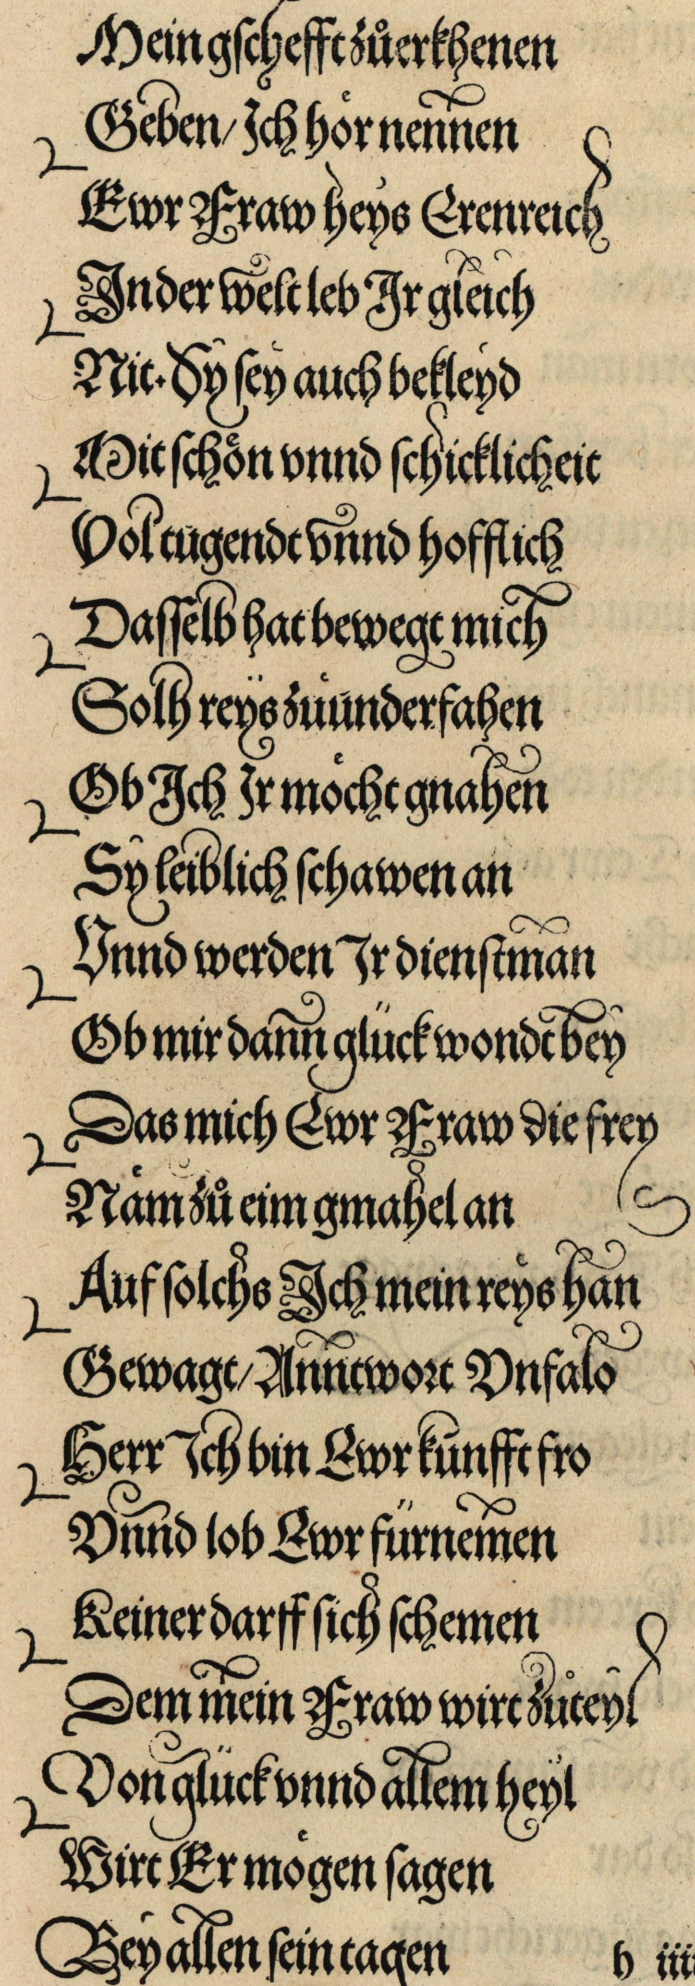 Mein gschefft zůerkhenen
Geben/ Ich hör nennen
Ewr Fraw heys Erenreich
In der welt leb Ir gleich
Nit. Sy sey auch bekleyd
Mit schön vnnd schicklicheit
Vol tugendt vnnd hofflich
Dasselb hat bewegt mich
Solh reys zuunderfahen
Ob Ich Ir möcht gnahen
Sy leiblich schawen an
Vnnd werden Ir dienstman
Ob mir dann glück wondt bey
Das mich Ewr Fraw die frey
Näm zů eim gmahel an
Auf solchs Ich mein reys han
Gewagt/ Anntwort Vnfalo
Herr Ich bin Ewr kunfft fro
Vnnd lob Ewr fürnemen
Keiner darff sich schemen
Dem mein Fraw wirt zůteyl
Von glück vnnd allem heyl
Wirt Er mögen sagen
Bey allen sein tagen
h iiii